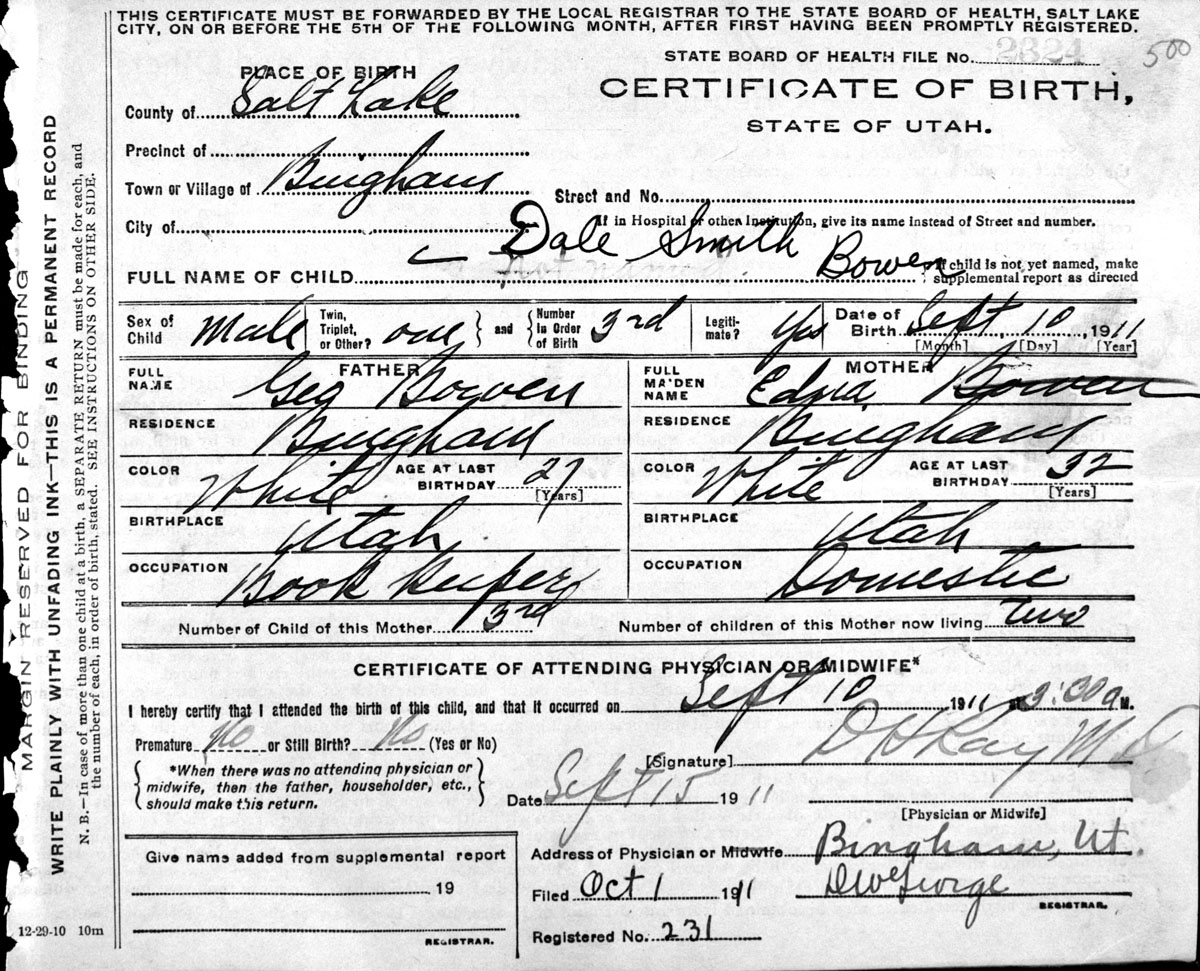 THIS CERTIFICATE MUST BE FORWARDED BY THE LOCAL REGISTRAR TO THE STATE BOARD OF HEALTH, SALT LAKE
CITY, ON OR BEFORE THE 5TH OF THE FOLLOWING MONTH, AFTER FIRST HAVING BEEN PROMPTLY REGISTERED.
STATE BOARD OF HEALTH FILE No. 2824
500
PLACE OF BIRTH
CERTIFICATE OF BIRTH,
STATE OF UTAH.
County of Salt Lake
Precinct of
Town or Village of Bingham
Street and No.
If in Hospital or other Institution, give its name instead of Street and number.
City of
FULL NAME OF CHILD Dale Smith Bowen
If child is not yet named, make
supplemental report as directed
Sex of Child Male Twin, Triplet, or Other? one and Number In Order of Birth 3rd Legiti-mate? Yes Date of Birth Sept 10, 1911
[Month] [Day] [Year]
FATHER MOTHER
FULL NAME Geo Bowen FULL MAIDEN NAME Edna Bowen
RESIDENCE Bingham RESIDENCE Bingham
COLOR White AGE AT LAST BIRTHDAY 27 [Years] COLOR White AGE AT LAST BIRTHDAY 32 [Years]
BIRTHPLACE Utah BIRTHPLACE Utah
OCCUPATION Book Keeper OCCUPATION Domestic
Number of Child of this Mother 3rd Number of children of this Mother now living two
CERTIFICATE OF ATTENDING PHYSICIAN OR MIDWIFE*
I hereby certify that I attended the birth of this child, and that it occurred on Sept 10 1911 3:30 a M.
Premature No or Still Birth? No (Yes or No)
[Signature] M D
*When there was no attending physician or
midwife, then the father, householder, etc.,
should make this return.
Date Sept 15 1911
[Physician or Midwife]
Give name added from supplemental report
19
REGISTRAR.
Address of Physician or Midwife Bingham, Ut.
Filed Oct 1 1911
REGISTRAR.
Registered No. 231
12-29-10 10m
MARGIN RESERVED FOR BINDING
WRITE PLAINLY WITH UNFADING INK—THIS IS A PERMANENT RECORD
N. B.—In case of more than one child at a birth, a SEPARATE RETURN must be made for each, and
the number of each, in order of birth, stated. SEE INSTRUCTIONS ON OTHER SIDE.